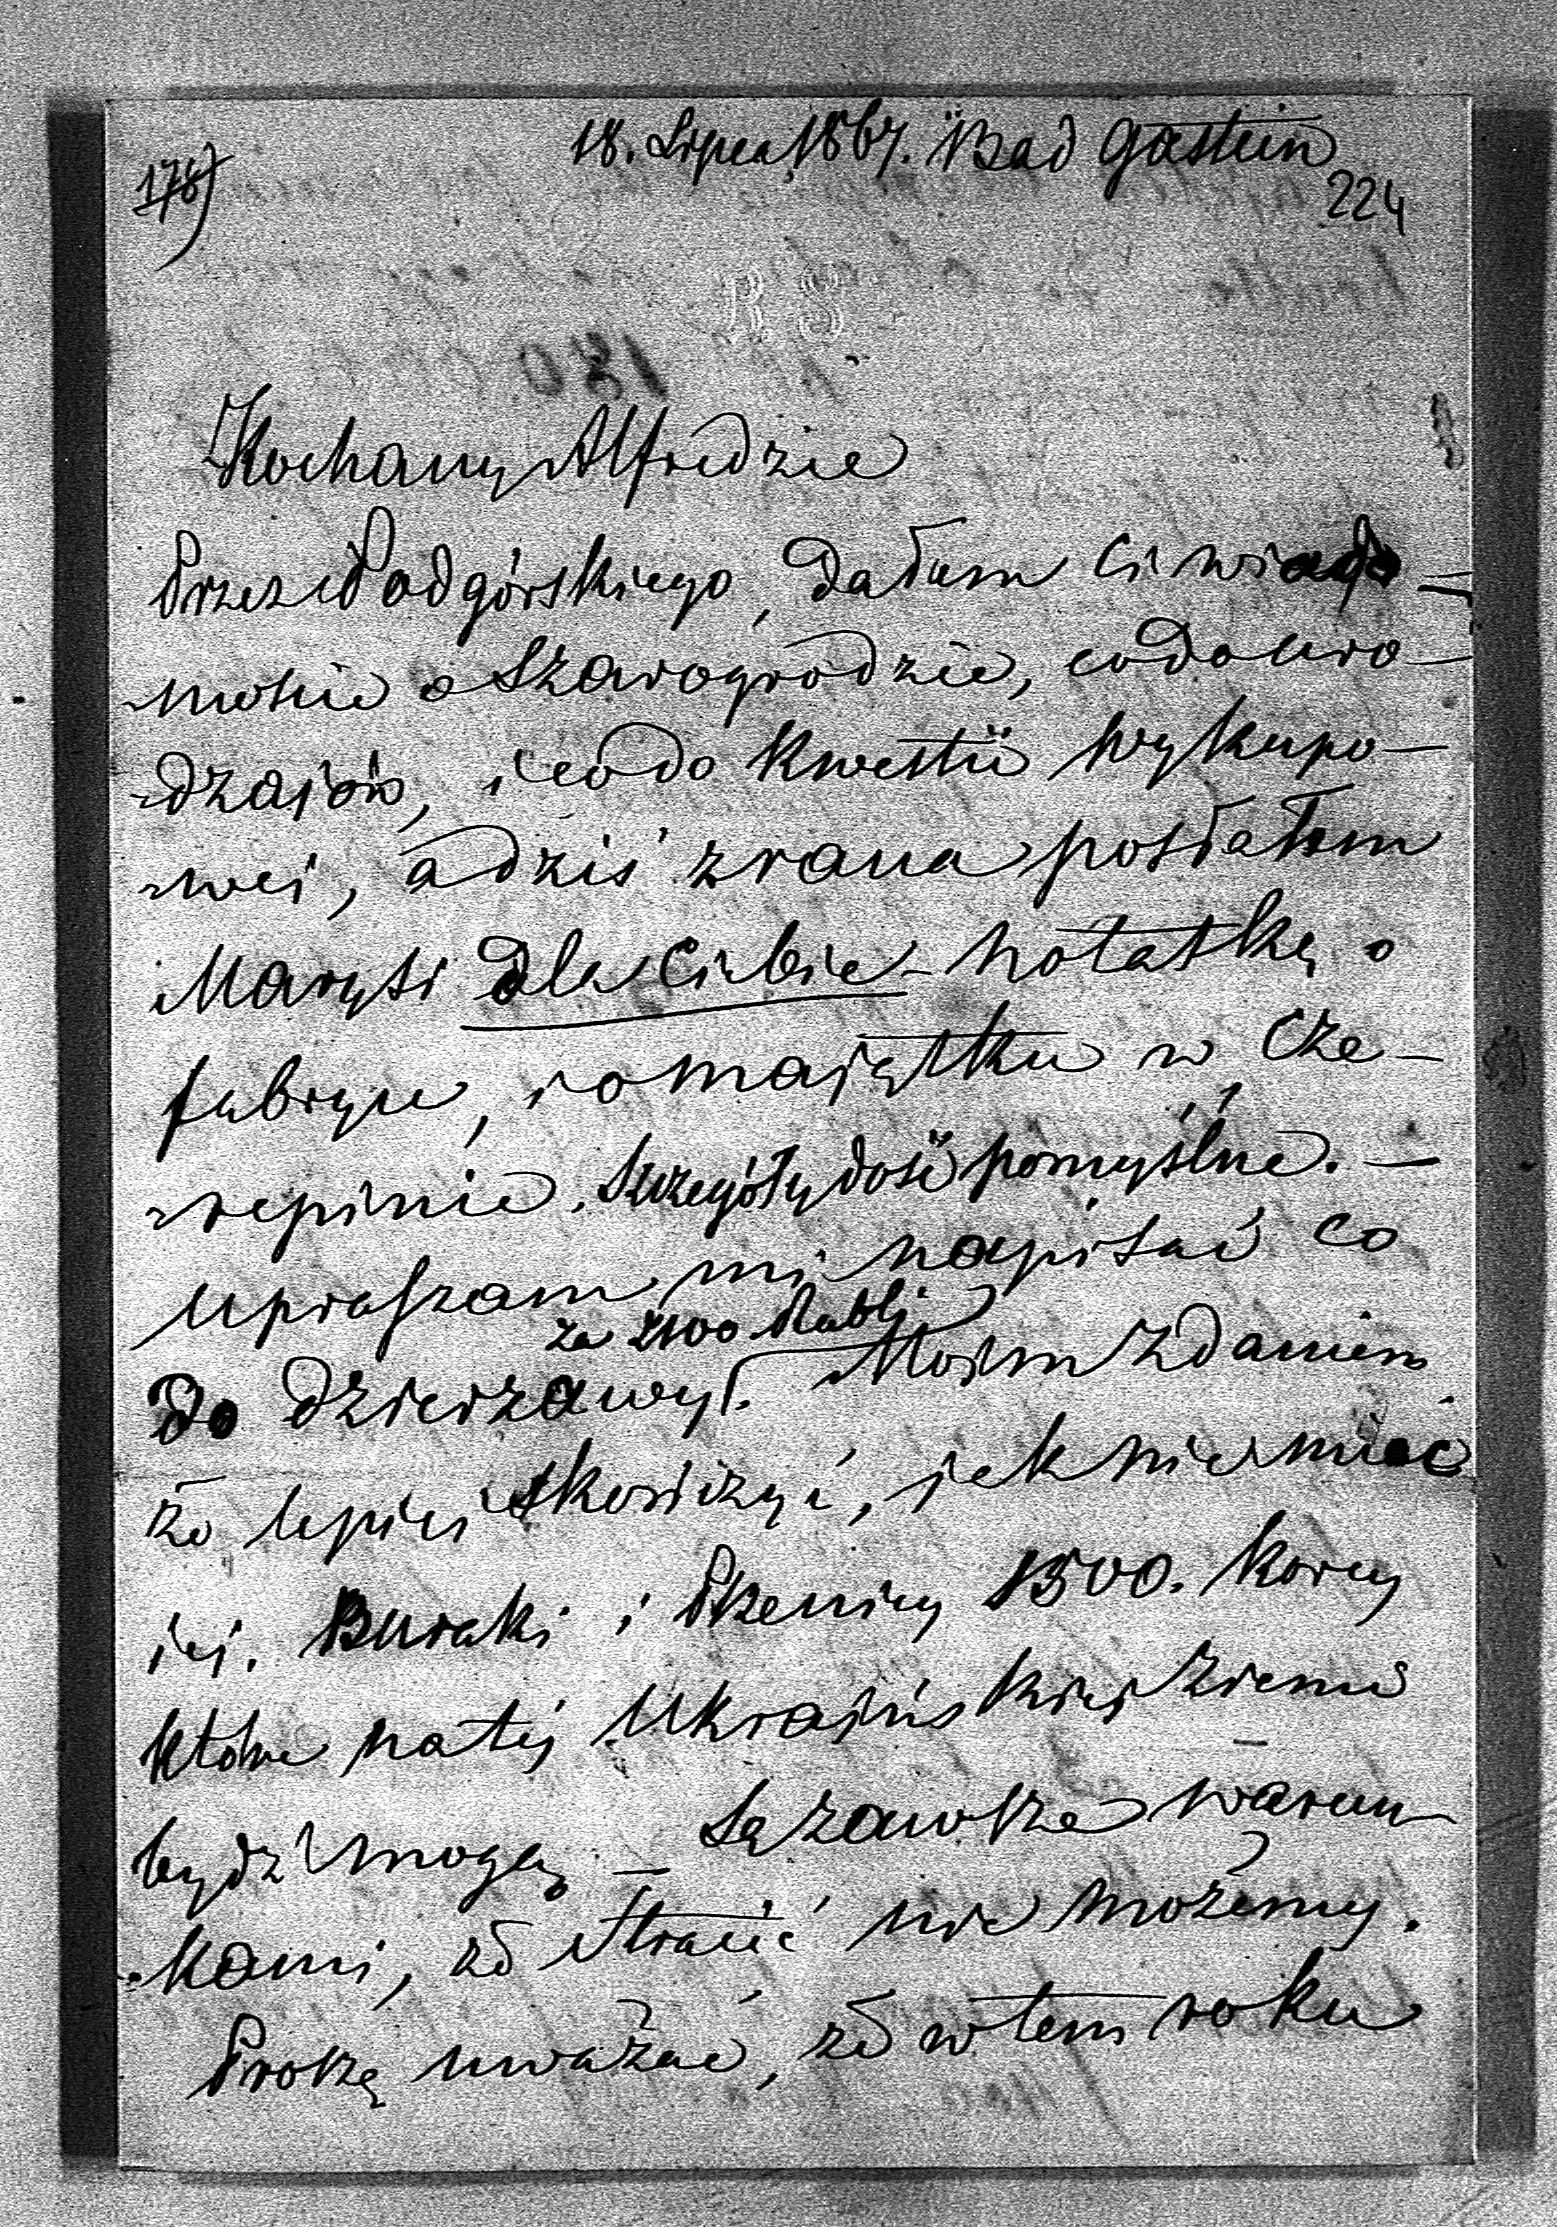 18. Lipca 1867. Bad Gastein
178)
224
R S
Kochany Alfredzie
Przez Podgórskiego, dałem Ci wiado-
mośie o Szarogrodzie, co do uro-
dzajów, i co do kwestii wykupo-
wej, a dziś zrana posłałem
Marysi dla Ciebie notatkę o
fabryce, i o majątku w Cze-
repinie. Szczegóły dość pomyślne. —
Upraszam mi napisać co
za 2100 Rubli
do dzierzawy. Moim zdaniem
to lepiej skończyć, jak nie mieć
jej. Buraki i Pszenicy 1500. korcy
które na tej Ukraińskiej ziemi
bydź mogą — są zawsze warun-
kami, że stracić nie możemy.
Proszę uważać, że w tem roku